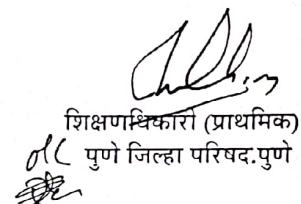 शिक्षणाधिकारी (प्राथमिक)
o/c पुणे जिल्हा परिषद.पुणे